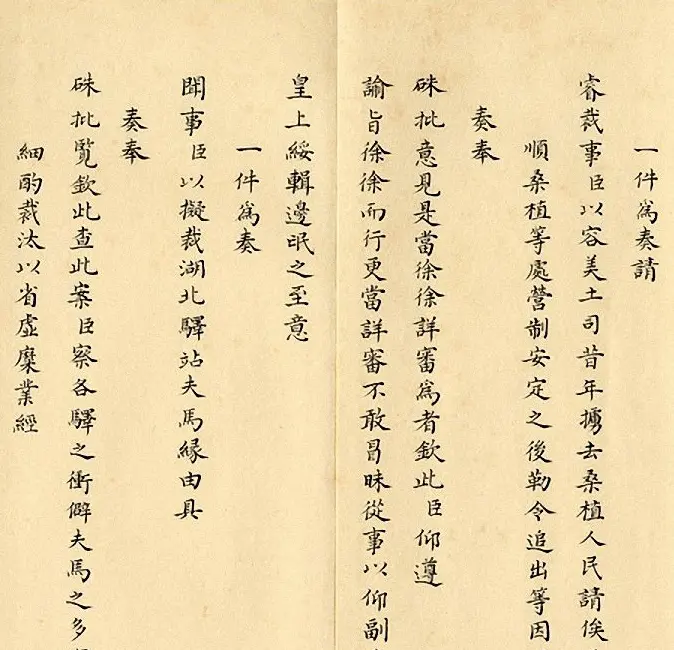 一件爲奏請
睿裁事臣以容美土司昔年擄去桑植人民請俟
順桑植等處營制安定之後勒令追出等因
奏奉
硃批意見是當徐徐詳審爲者欽此臣仰遵
諭旨徐徐而行更當詳審不敢冒昧從事以仰副
皇上綏輯邊氓之至意
一件爲奏
聞事臣以擬裁湖北驛站夫馬緣由具
奏奉
硃批覽欽此查此案臣察各驛之衝僻夫馬之多
細酌裁汰以省虛糜業經